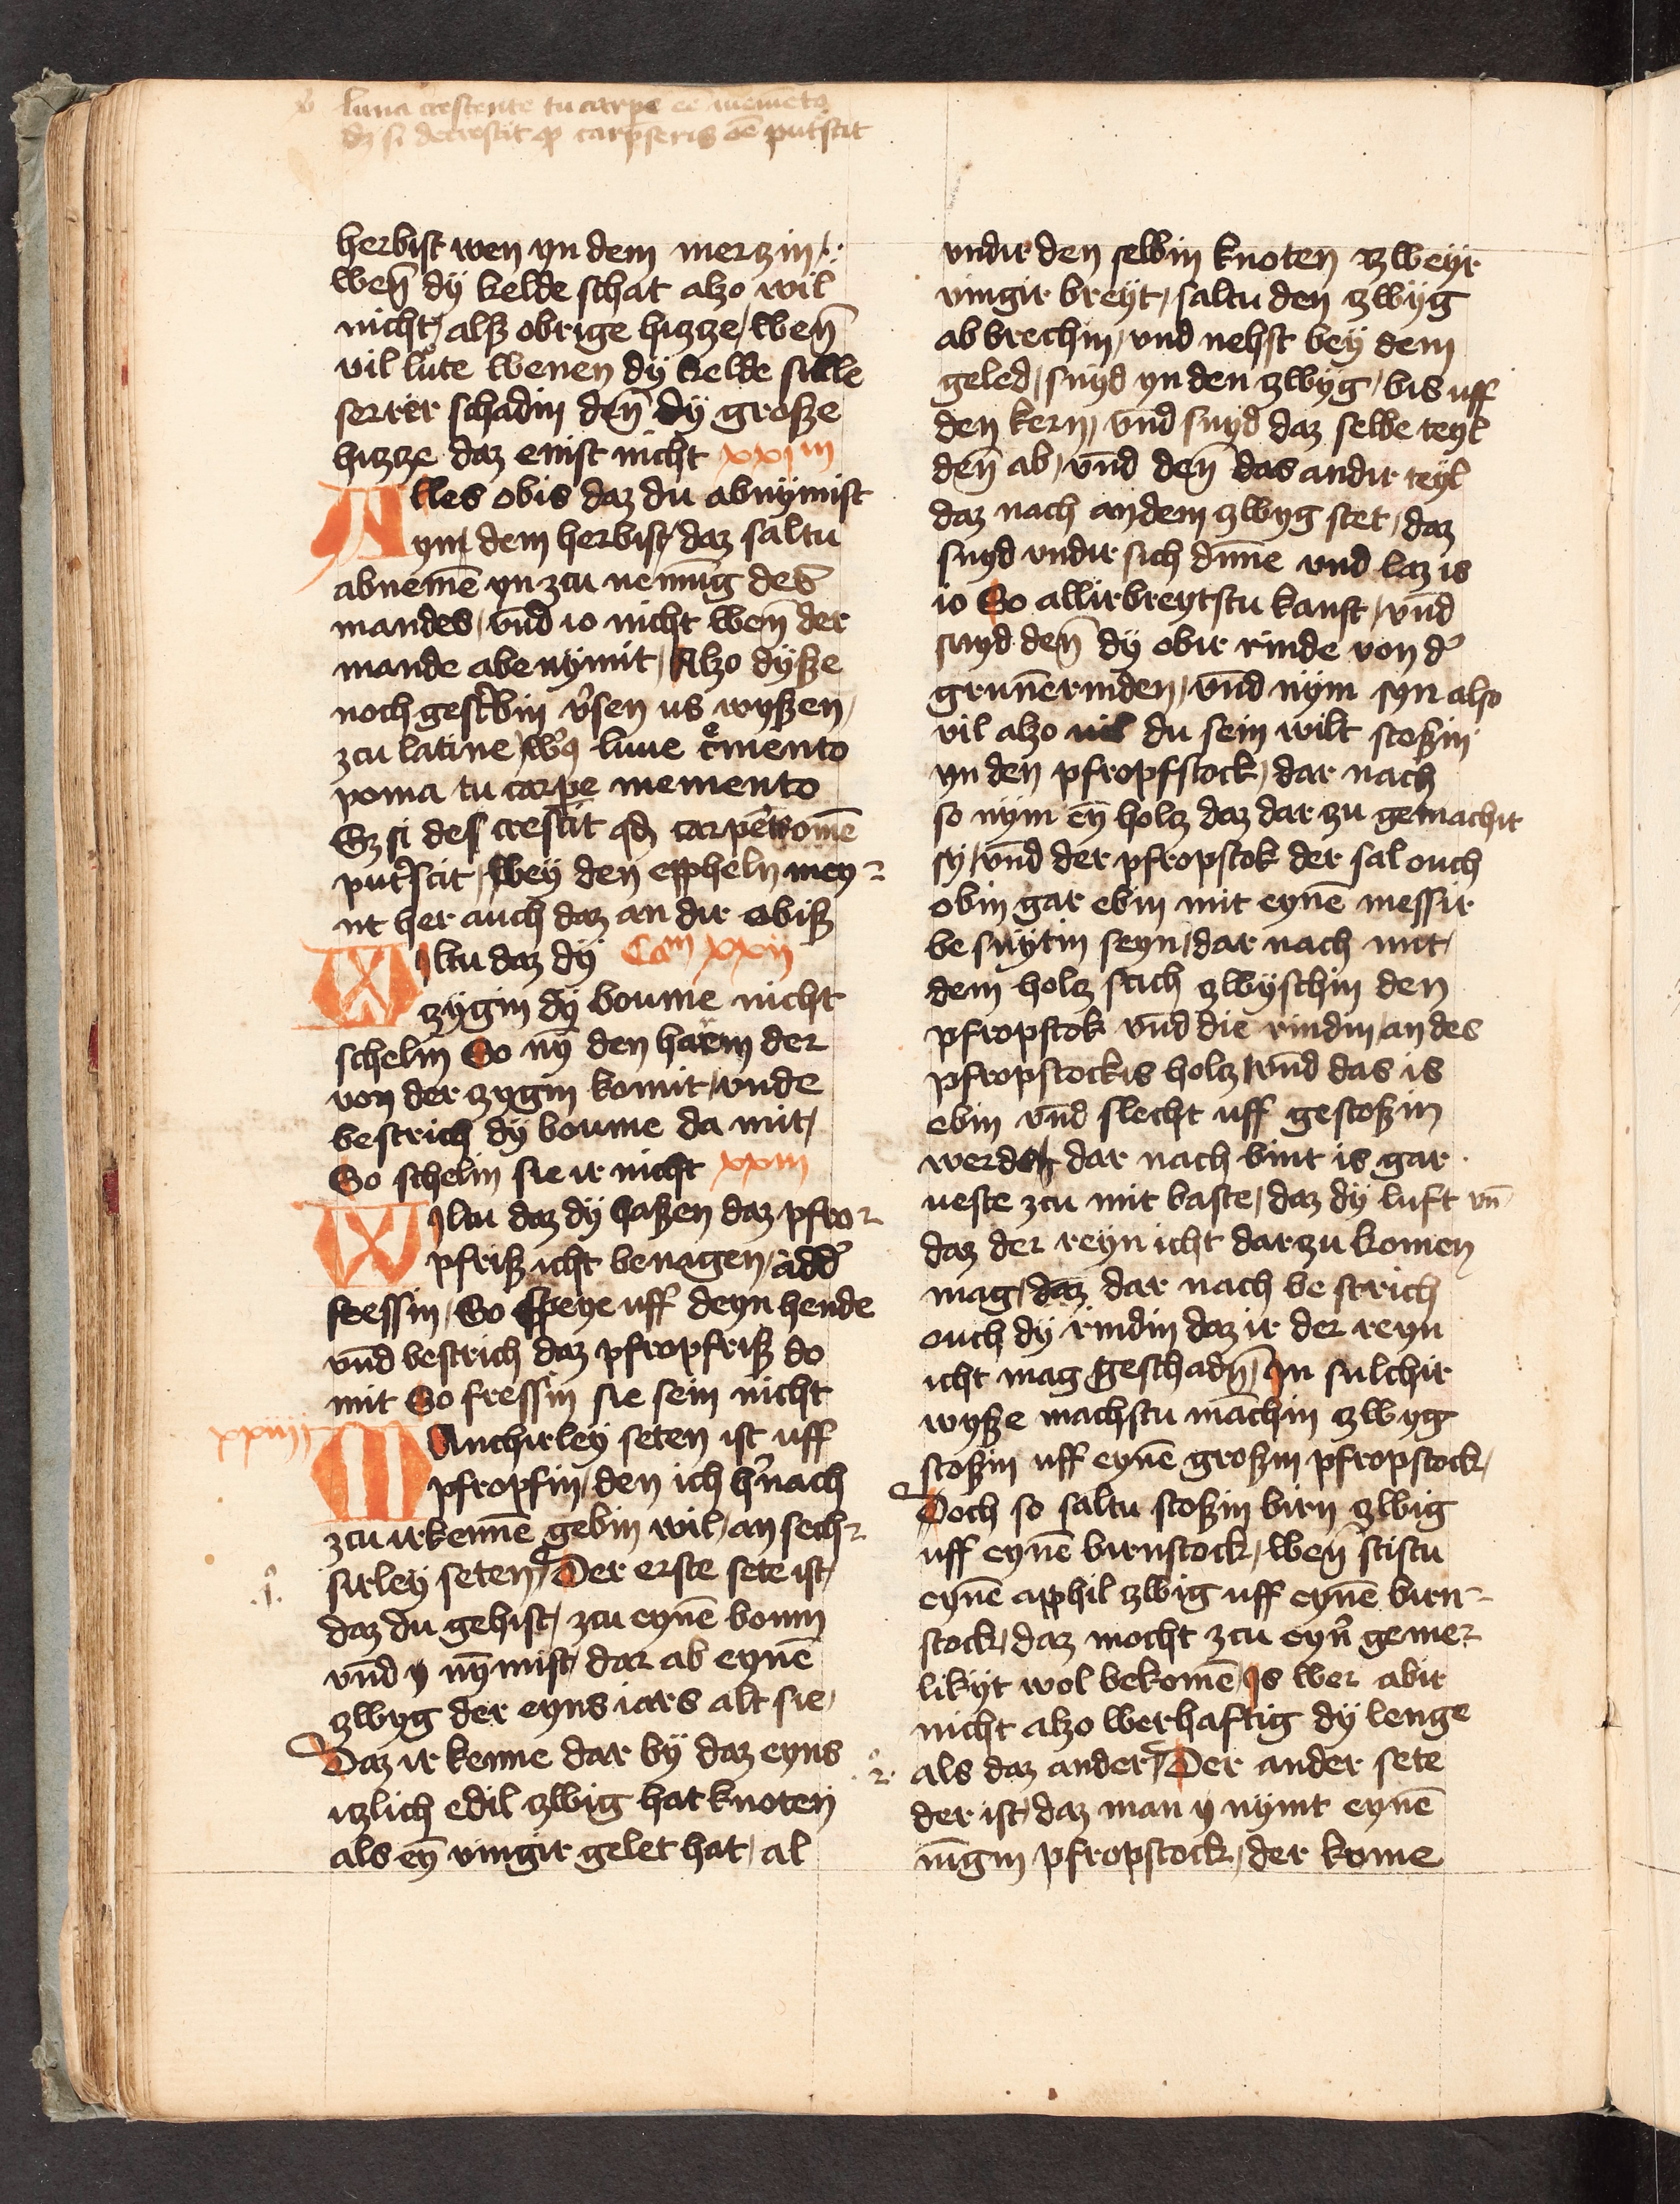 luna crescente tu carpe ee memēto
dz si decrescit qͦ carpseris oē putˢcit
herbist wen yn dem merzin /.
wen̄ dÿ kelde schat alzo wil
nicht / alß obrige hizze / wen̄
vil lute wenen dÿ kelde sulle
serrer schadin den̄ dÿ große
hizze daz enist nicht xxim
Alles obis daz du abnÿmist
yn dem herbist daz saltu
abnemē yn zcu nemūg des
mandes / vnd io nicht wen̄ der
mande abe nÿmit / Alzo dÿße
noch gescrebin vˢsen us wyßen /
zcu latine
lune cͤmento
poma tu carpe memento
Sz si des crescit qd carpeˢ omē
putˢscit / Wey den eppheln mey-
nt her auch daz an dir obiß
Wiltu daz dÿ Cam xxii
zÿgin dÿ boume nicht
schelin So nȳ den harm der
von der zygin komit / vnde
bestrich dÿ boume da mit /
So schelin sie ir nicht xxiii
Wiltu daz dÿ haßen daz pfro-
pfriß icht benagen / add'
fressin / So speye uff deyn hende
vnd bestrich daz pfropfriß do
mit So fressin sie sein nicht
xxiiii
Manchirley seten ist uff
pfropfin / den ich hˢnach
zcu irkennē gebin wil / an sech-
sirley seten / Der erste sete ist /
.1.
daz du gehist / zcu eynē boum
vnd y nȳmist / dar ab eynē
zwyg der eyns iars alt sie /
Daz ir kenne dar bÿ daz eyns
itzlich edil zwig hat knoten
als eȳ vingir gelet hat / al
vndir den selbin knoten zweyr
vingir breÿt / saltu den zwÿg
ab brechin / vnd nehst beÿ dem
geled / snÿd yn den zwÿg / bis uff
den kern / vnd snyd daz selbe teyl
den̄ ab / vnd den̄ das andir teyl
daz nach an dem zwyg stet / daz
snyd vndir sich dunne vnd laz is
io So allirbreytstu kanst / vnd
snyd den̄ dÿ obir rinde von dˢ
grunē rinden / vnd nÿm syn also
vil alzo vil du sein wilt stoßin
yn den pfropfstock / dar nach
so nÿm eȳ holz daz dar zu gemachit
sÿ / vnd der pfropstok der sal ouch
obin gar ebin mit eynē messir
be snÿtin seyn / dar nach mit /
dem holz stich zwÿschin den
pfropstok vnd die rindin / an des
pfropstockis holz / vnd das is
ebin vnd slecht uff gestoßin
werden dar nach bint is gar
veste zcu mit baste / daz dÿ luft vn̄
daz der reyn icht dar zu komen
mag / daz dar nach be strich
ouch dÿ rindin daz ir der reyn
icht mag geschadȳ / Jn sulchir
wyße machstu māchin zwyg
stoßin uff eynē großin pfropstock /
Doch so saltu stoßin birn zwig
uff eynē birnstock / wen̄ stistu
eynē apphil zwig uff eynē birn-
stock / daz mocht zcu eynˢ geme-
likÿt wol bekomē / Js wer abir
nicht alzo werhaftig dÿ lenge
als daz ander / Der ander sete
.2.
der ist / daz man y nÿmt eynē
iūgin pfropstock / der kome